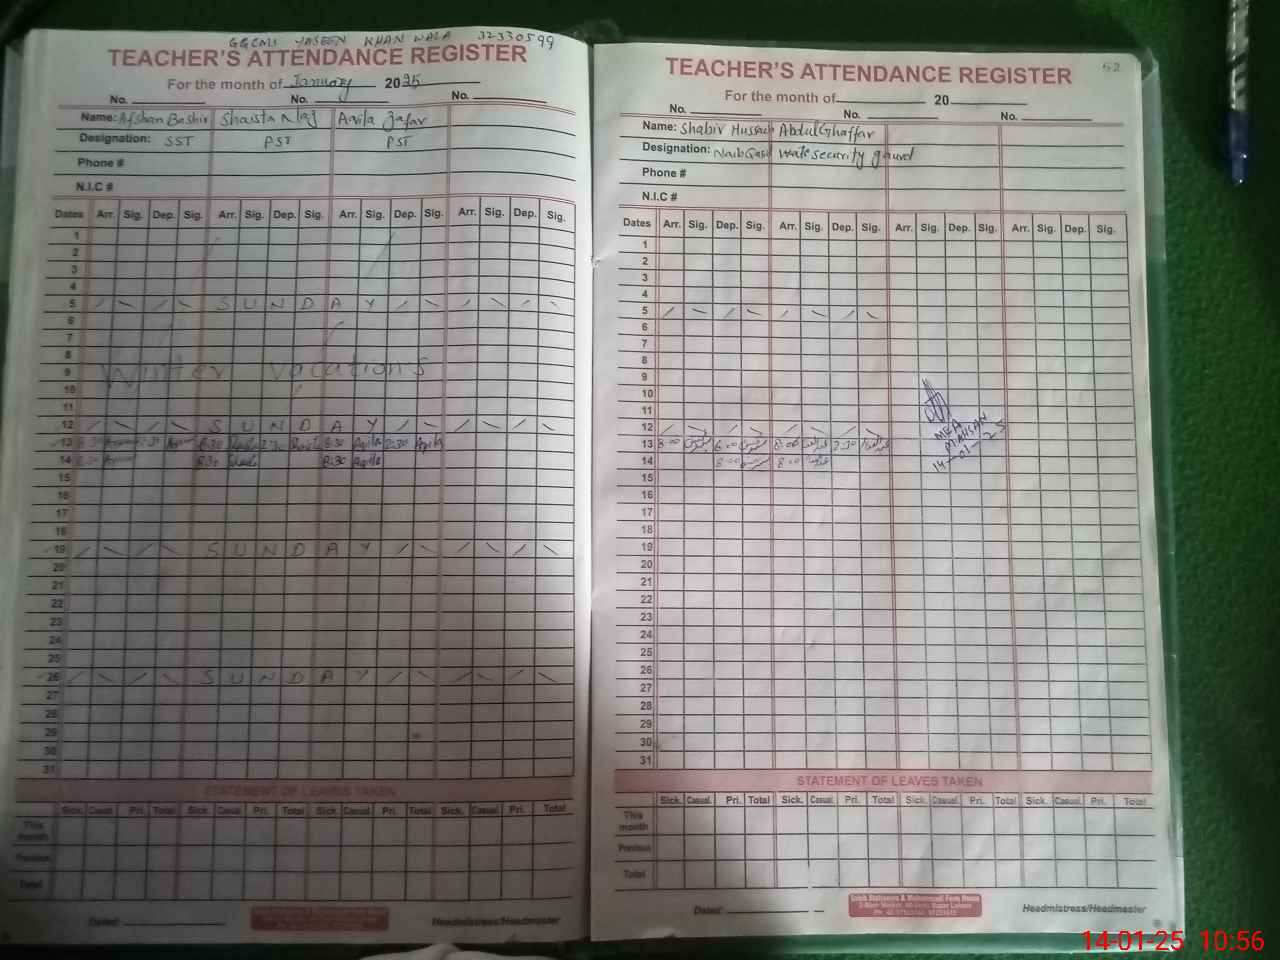 GGCMS YASEEN KHAN WALA 32330599
TEACHER'S ATTENDANCE REGISTER
For the month of January 2025
No. No. No.
Name: Afshan Bashir Shaista Naz Aqila Jafar
Designation: SST PST PST
Phone #
N.I.C #
Dates Arr. Sig. Dep. Sig. Arr. Sig. Dep. Sig. Arr. Sig. Dep. Sig. Arr. Sig. Dep. Sig.
1
2
3
4
5 SUNDAY
6
7
8
9 Winter vacations
10
11
12 SUNDAY
13 8:30 8:30 8:30 Aqila 2:30 Aqila
14 8:30 8:30 8:30 Aqila
15
16
17
18
19 SUNDAY
20
21
22
23
24
25
26 SUNDAY
27
28
29
30
31
STATEMENT OF LEAVES TAKEN
Sick. Casual. Pri. Total Sick. Casual. Pri. Total Sick. Casual. Pri. Total Sick. Casual. Pri. Total
This month
Previous
Total
Dated: Headmistress/Headmaster
52
TEACHER'S ATTENDANCE REGISTER
For the month of 20
No. No. No.
Name: Shabir Hussain Abdul Ghaffar
Designation: Naib Qasid security gaurd
Phone #
N.I.C #
Dates Arr. Sig. Dep. Sig. Arr. Sig. Dep. Sig. Arr. Sig. Dep. Sig. Arr. Sig. Dep. Sig.
1
2
3
4
5
6
7
8
9
10
11
12
13 8:00 8:00 2:30
14 8:00 8:00
MEA
MAHSAN
14-01-25
15
16
17
18
19
20
21
22
23
24
25
26
27
28
29
30
31
STATEMENT OF LEAVES TAKEN
Sick. Casual. Pri. Total Sick. Casual. Pri. Total Sick. Casual. Pri. Total Sick. Casual. Pri. Total
This month
Previous
Total
Dated: Headmistress/Headmaster
14-01-25 10:56